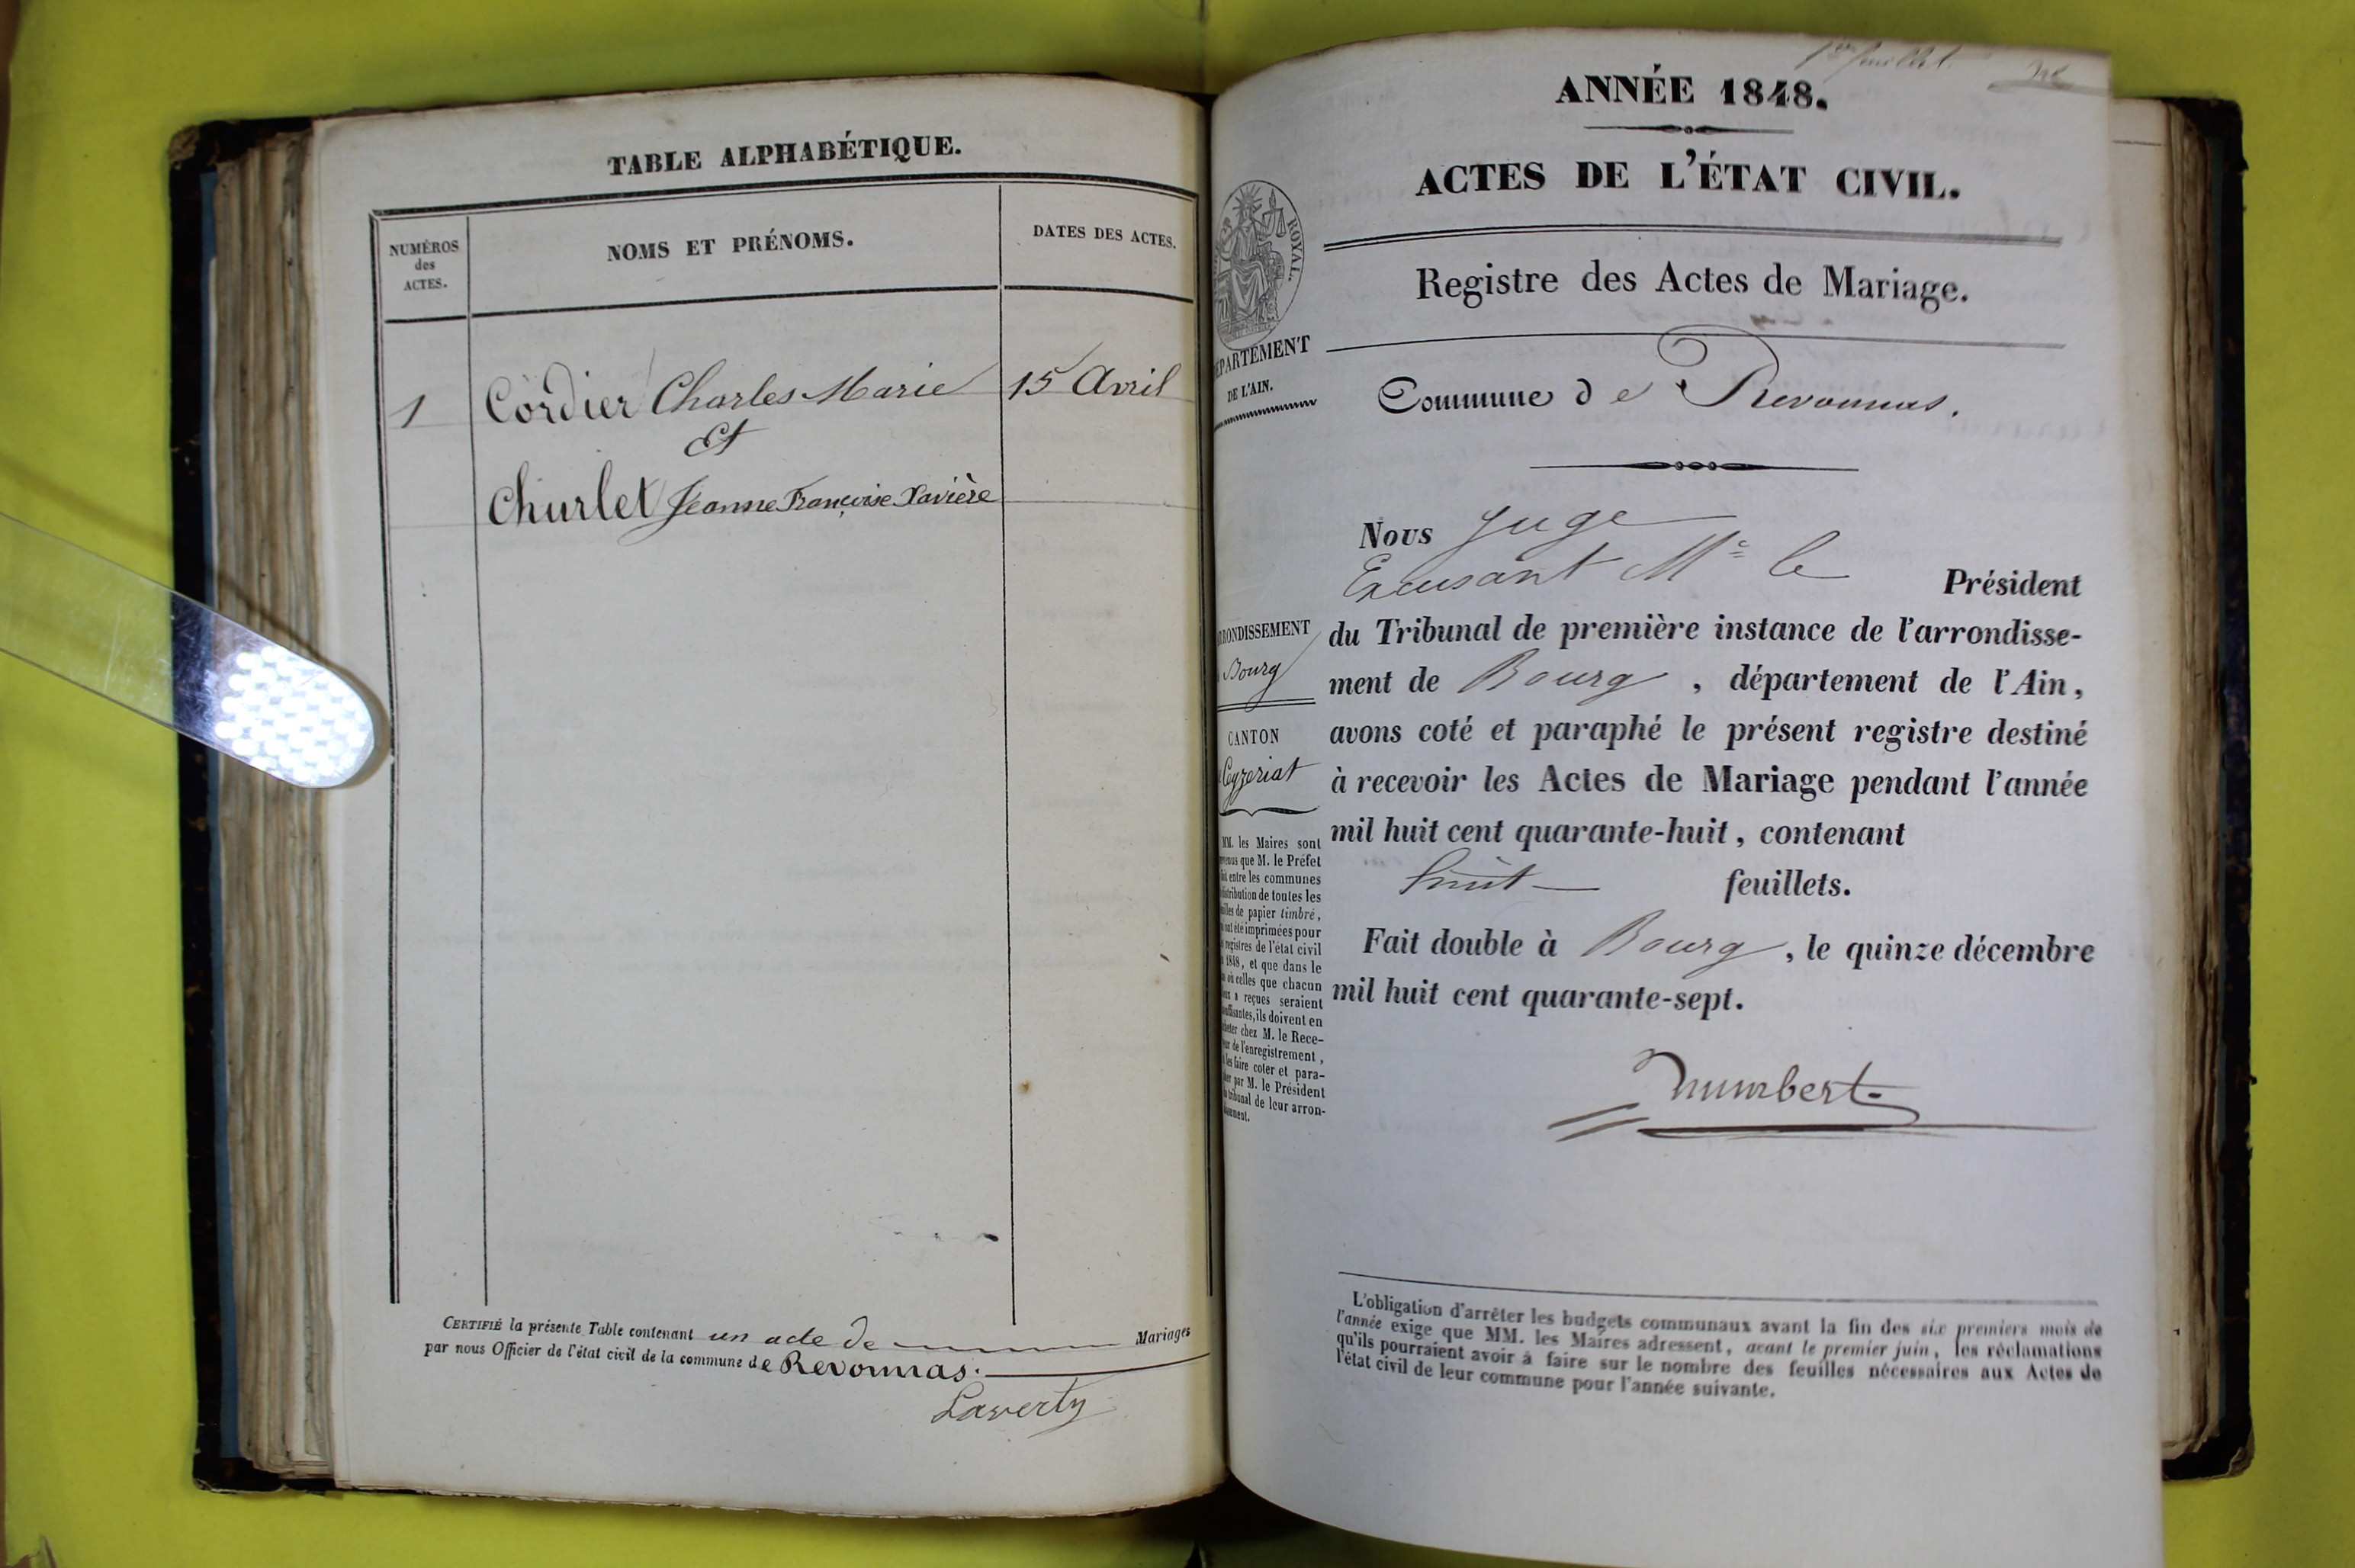 TABLE ALPHABÉTIQUE.
NUMÉROS
des
ACTES.
NOMS ET PRÉNOMS.
DATES DES ACTES.
1 Cordier Charles Marie 15 Avril
Et
Churlet Jeanne Françoise Xavière
CERTIFIÉ la présente Table contenant un acte de Mariages
par nous Officier de l'état civil de la commune de Revonnas.
Laverty
1er Juillet
ANNÉE 1848.
ACTES DE L'ÉTAT CIVIL.
ROYAL.
Registre des Actes de Mariage.
DÉPARTEMENT
DE L'AIN.
Commune de Revonnas.
Nous Juge
Excusant Mr le Président
ARRONDISSEMENT
Bourg
du Tribunal de première instance de l'arrondisse-
ment de Bourg, département de l'Ain,
CANTON
Ceyzeriat
avons coté et paraphé le présent registre destiné
à recevoir les Actes de Mariage pendant l'année
mil huit cent quarante-huit, contenant
huit feuillets.
Fait double à Bourg, le quinze décembre
mil huit cent quarante-sept.
humbert
MM. les Maires sont
que M. le Préfet
entre les communes
distribution de toutes les
de papier timbré,
ont été imprimées pour
registres de l'état civil
1848, et que dans le
où celles que chacun
a reçues seraient
insuffisantes, ils doivent en
acheter chez M. le Rece-
de l'enregistrement,
les faire coter et para-
pher par M. le Président
tribunal de leur arron-
dissement.
L'obligation d'arrêter les budgets communaux avant la fin des six premiers mois de
l'année exige que MM. les Maires adressent, avant le premier juin, les réclamations
qu'ils pourraient avoir à faire sur le nombre des feuilles nécessaires aux Actes de
l'état civil de leur commune pour l'année suivante.